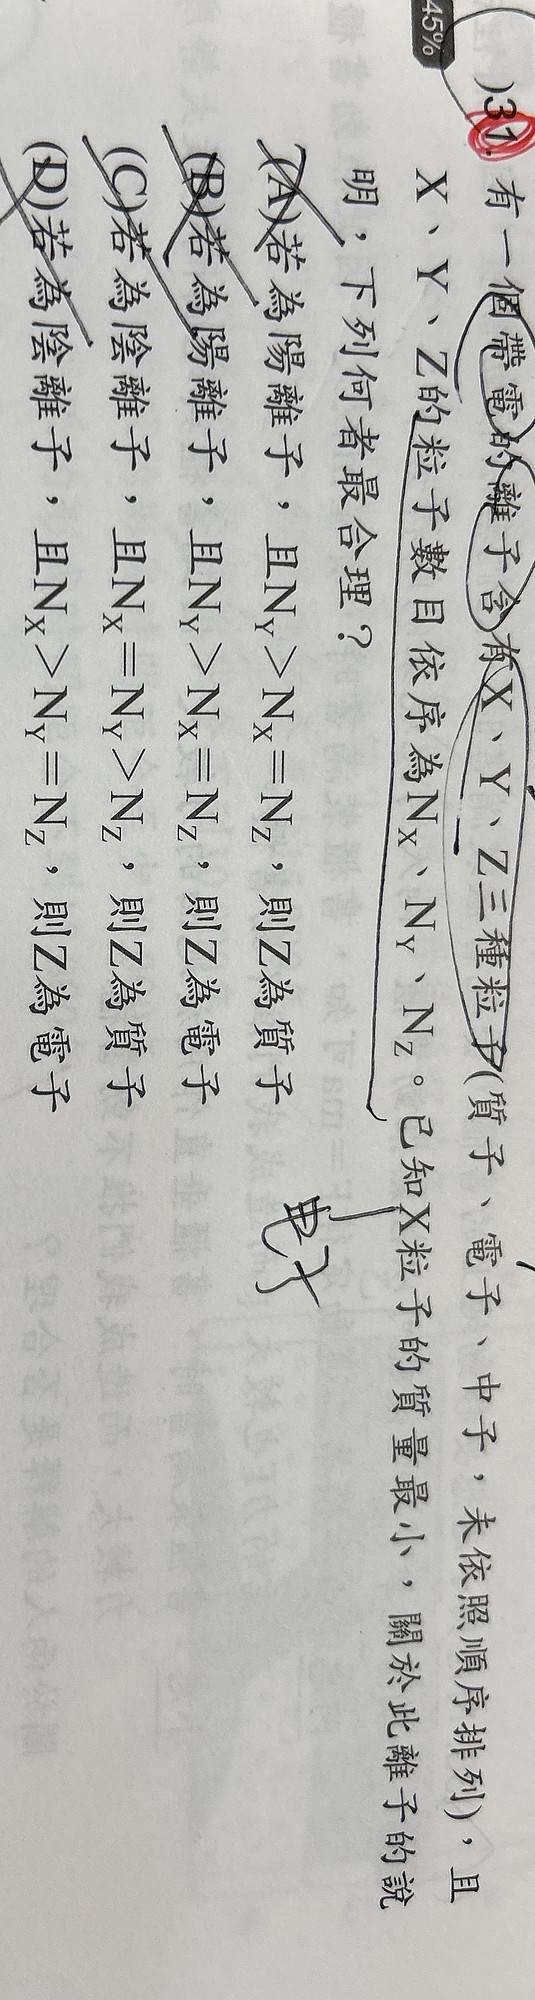 45%
)31. 有一個帶電的離子含有X、Y、Z三種粒子(質子、電子、中子，未依照順序排列)，且
X、Y、Z的粒子數目依序為NX、NY、NZ。已知X粒子的質量最小，關於此離子的說
明，下列何者最合理？
电子
(A)若為陽離子，且NY＞NX＝NZ，則Z為質子
(B)若為陽離子，且NY＞NX＝NZ，則Z為電子
(C)若為陰離子，且NX＝NY＞NZ，則Z為質子
(D)若為陰離子，且NX＞NY＝NZ，則Z為電子